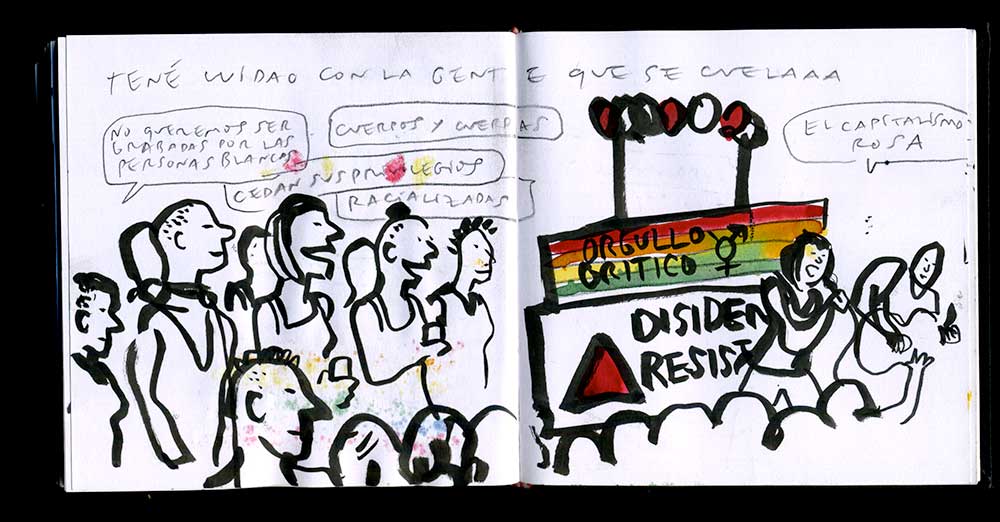 TENÉ CUIDAO CON LA GENTE QUE SE CUELAAA
NO QUEREMOS SER
GRABADAS POR LAS
PERSONAS BLANCAS
CUERPOS Y CUERPAS
CEDAN SUS PRIVILEGIOS
RACIALIZADAS
EL CAPITALISMO
ROSA
ORGULLO
CRITICO
DISIDEN
RESIST